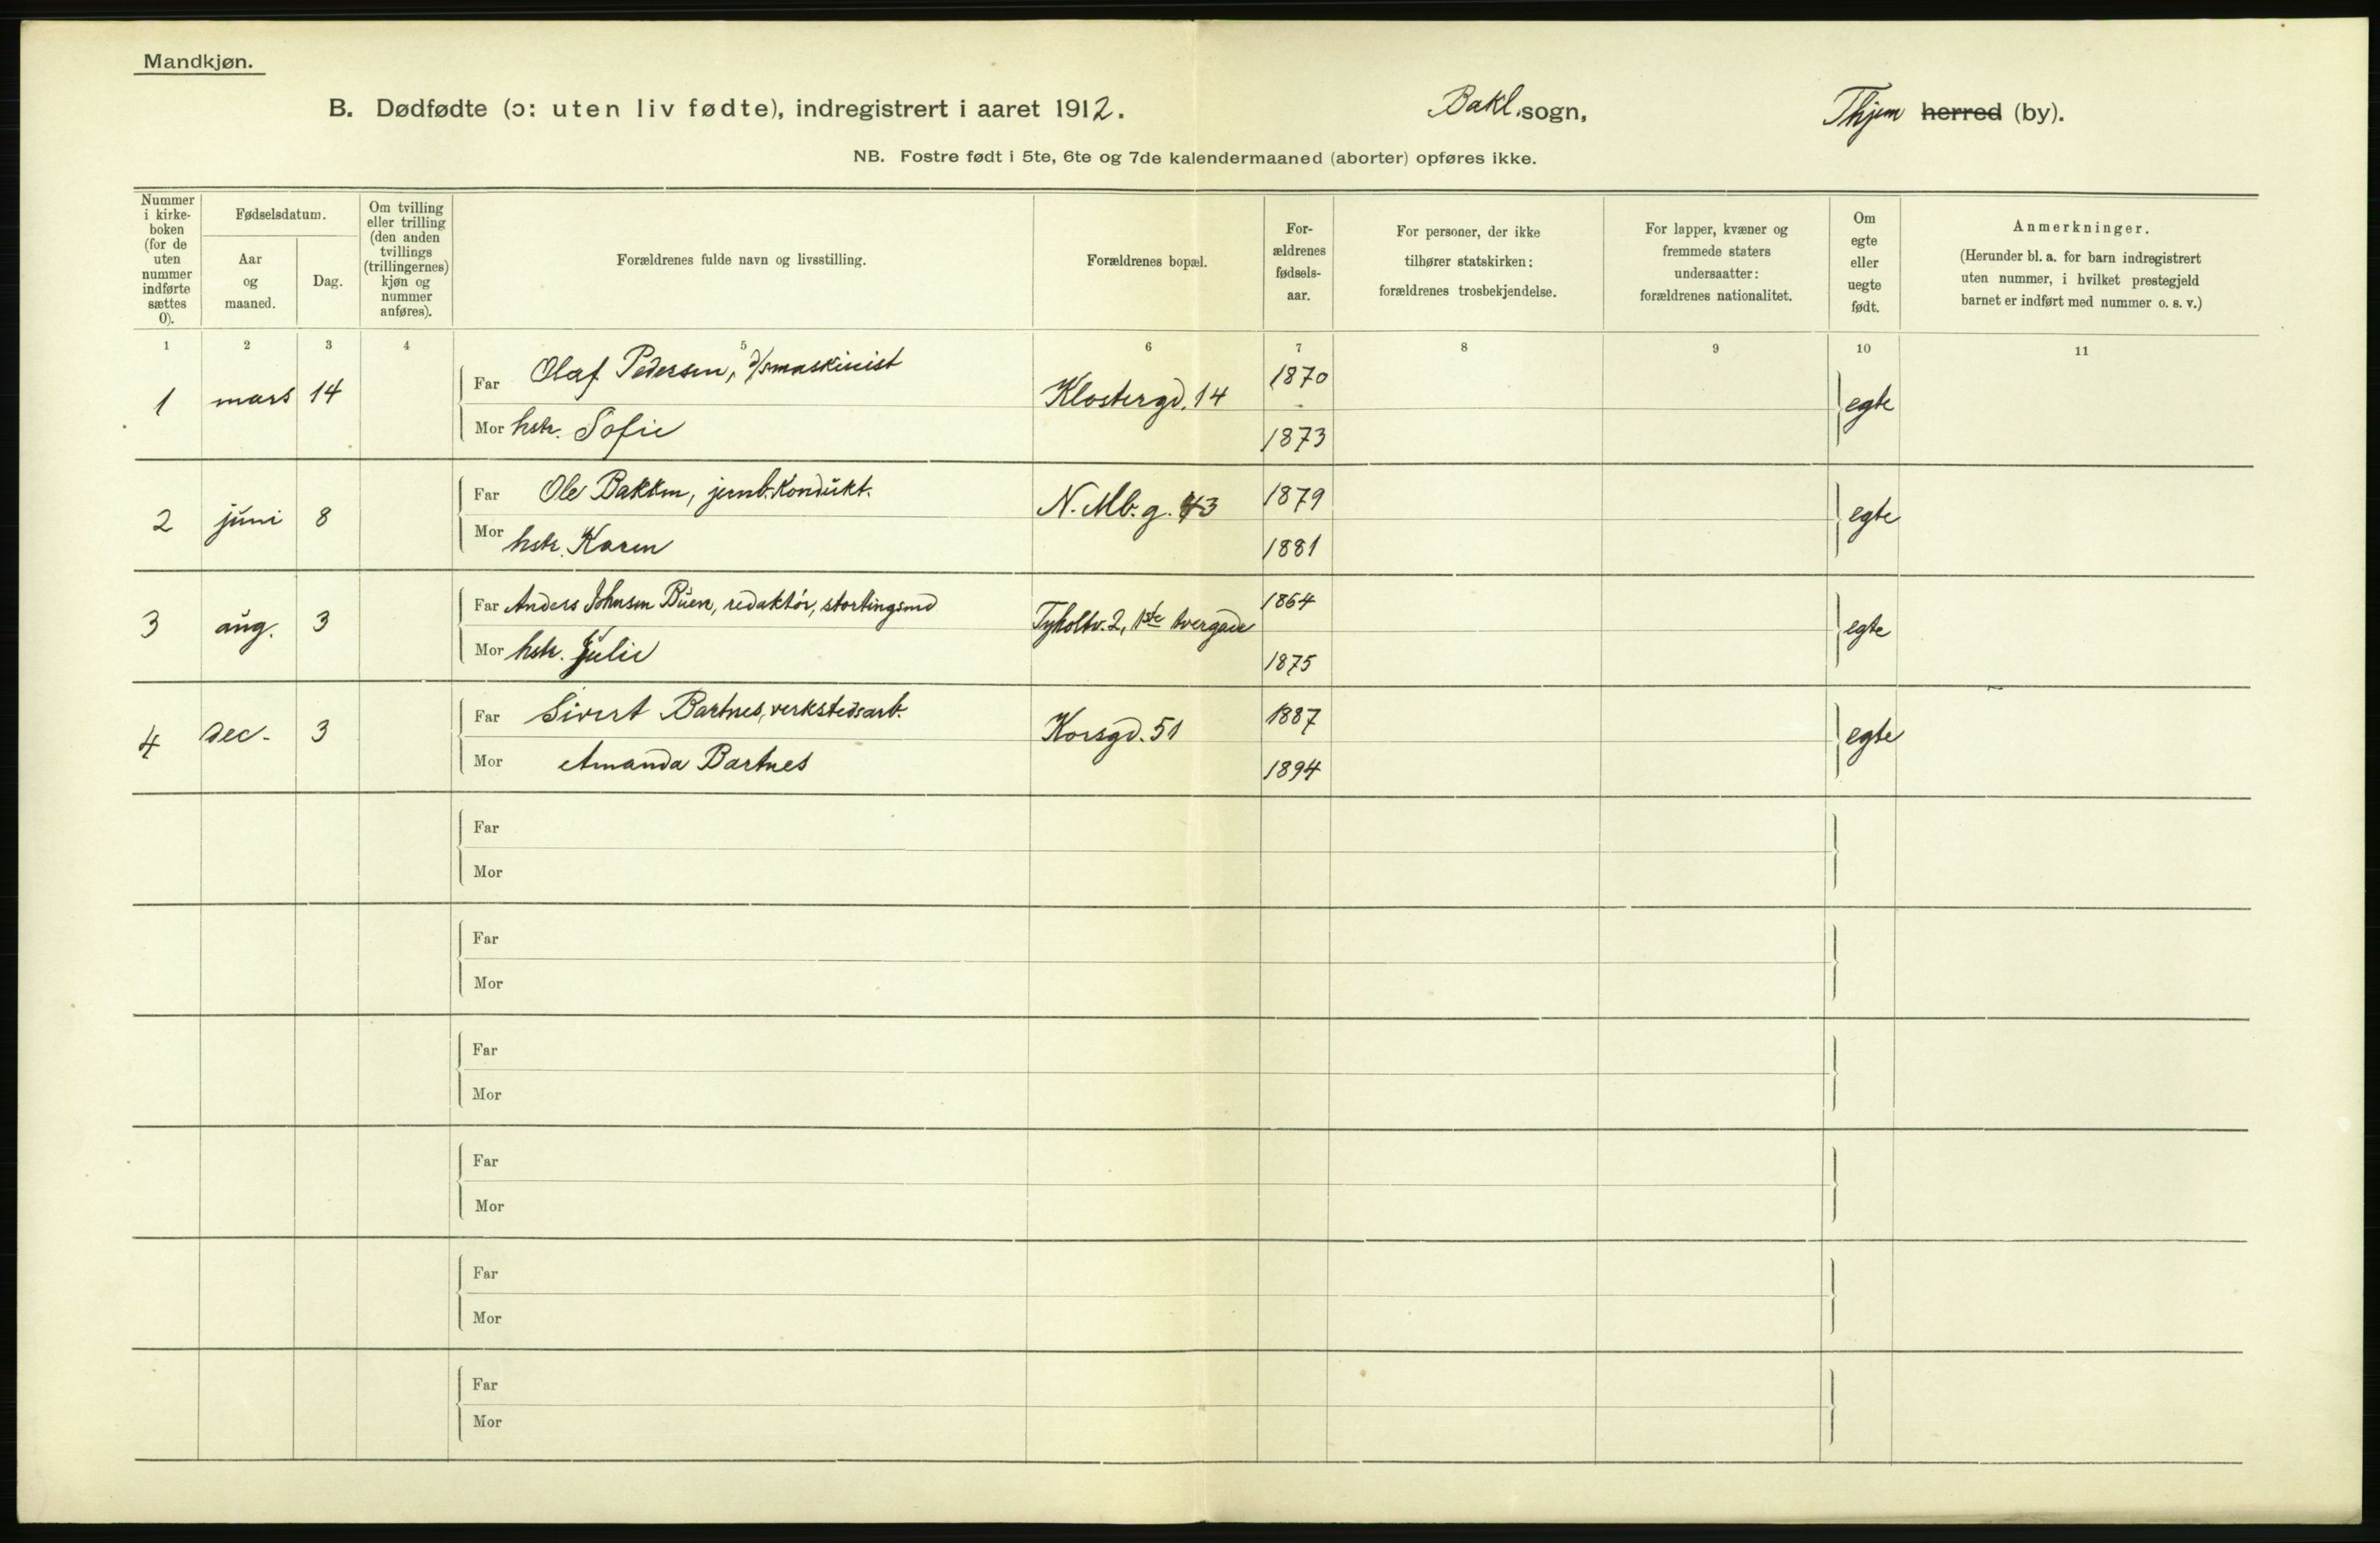 Mandkjøn.
B. Dødfødte (ɔ: uten liv fødte), indregistrert i aaret 1912. Bakl. sogn, Thjem herred (by).
NB. Fostre født i 5te, 6te og 7de kalendermaaned (aborter) opføres ikke.
Nummer i kirke-
boken
(for de
uten
nummer
indførte
sættes
0).
Fødselsdatum.
Aar
og
maaned.
Dag.
Om tvilling
eller trilling
(den anden
tvillings
(trillingernes)
kjøn og
nummer
anføres).
Forældrenes fulde navn og livsstilling.
Forældrenes bopæl.
For-
ældrenes
fødsels-
aar.
For personer, der ikke
tilhører statskirken:
forældrenes trosbekjendelse.
For lapper, kvæner og
fremmede staters
undersaatter:
forældrenes nationalitet.
Om
egte
eller
uegte
født.
Anmerkninger.
(Herunder bl. a. for barn indregistrert
uten nummer, i hvilket prestegjeld
barnet er indført med nummer o. s. v.)
1 2 3 4 5 6 7 8 9 10 11
1 mars 14 Far Olaf Pedersen, d/smaskinist Klostergd. 14 1870 egte
Mor hstr. Sofie 1873
2 juni 8 Far Ole Bakken, jernb. kondukt. N. Mb. g. 43 1879 egte
Mor hstr. Karen 1881
3 aug. 3 Far Anders Johnsen Buen, redaktør, stortingsmd Tyholtv. 2, 1ste tvergade 1864 egte
Mor hstr. Julie 1875
4 dec. 3 Far Sivert Bartnes, verkstedsarb. Korsgd. 51 1887 egte
Mor Amanda Bartnes 1894
Far
Mor
Far
Mor
Far
Mor
Far
Mor
Far
Mor
Far
Mor